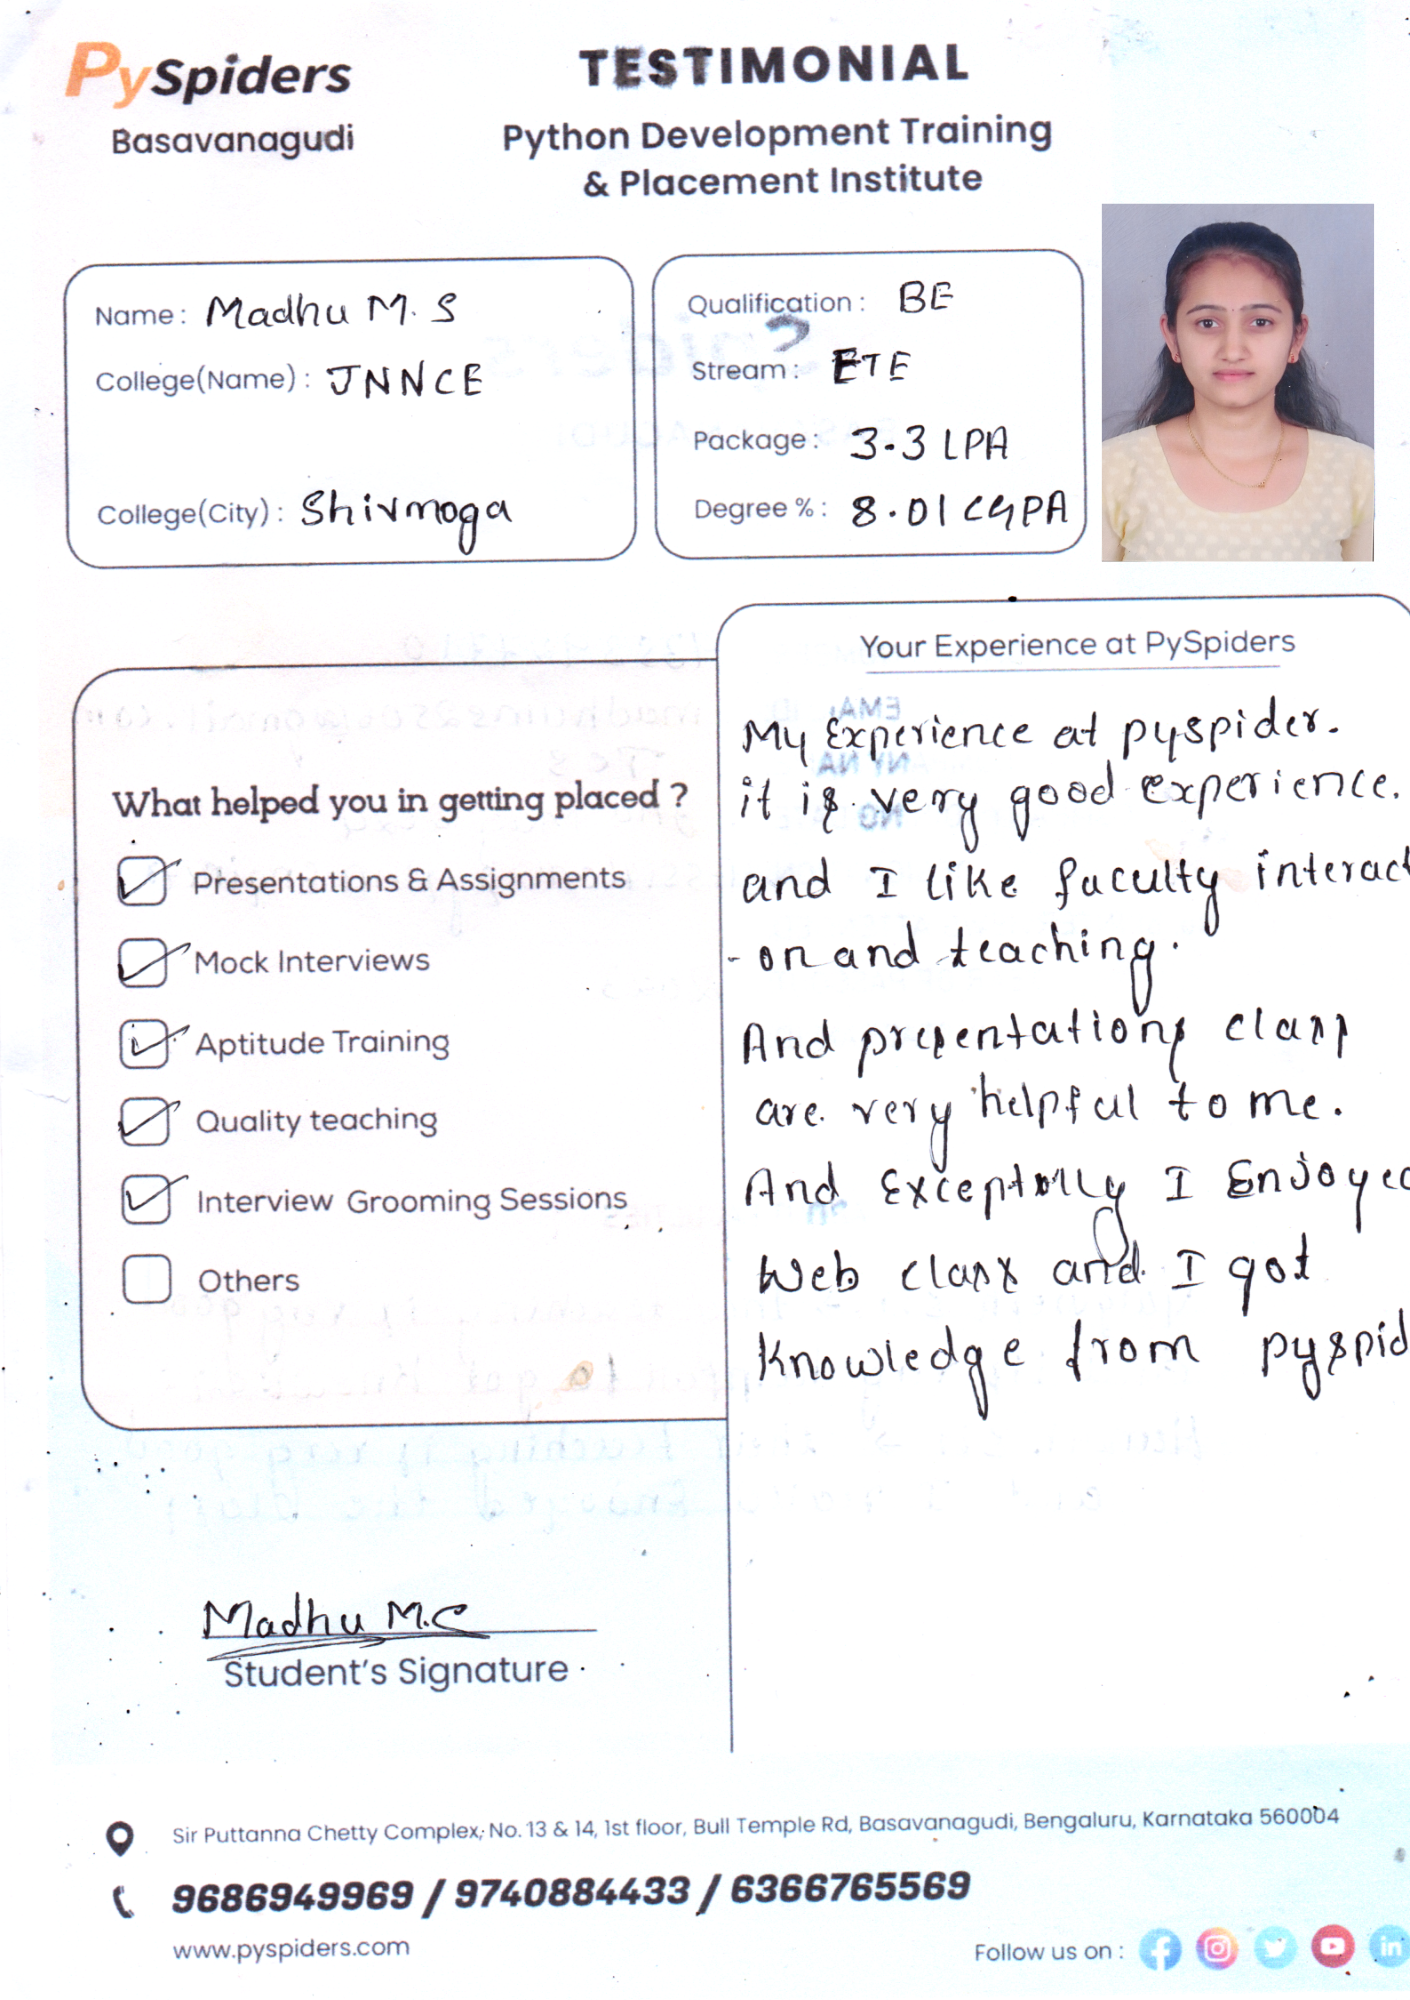 PySpiders
Basavanagudi
TESTIMONIAL
Python Development Training
& Placement Institute
Name : Madhu M. S
College(Name) : JNNCE
College(City) : Shivmoga
Qualification : BE
Stream : ETE
Package : 3.3 LPA
Degree % : 8.01 CGPA
What helped you in getting placed ?
Presentations & Assignments
Mock Interviews
Aptitude Training
Quality teaching
Interview Grooming Sessions
Others
Your Experience at PySpiders
My Experience at pyspider.
it is very good experience.
and I like faculty interact
- on and teaching.
And presentations class
are very helpful to me.
And I Enjoyed
Web class and I got
Knowledge from pyspid
Madhu M.S
Student's Signature
Sir Puttanna Chetty Complex, No. 13 & 14, 1st floor, Bull Temple Rd, Basavanagudi, Bengaluru, Karnataka 560004
9686949969 / 9740884433 / 6366765569
www.pyspiders.com
Follow us on :